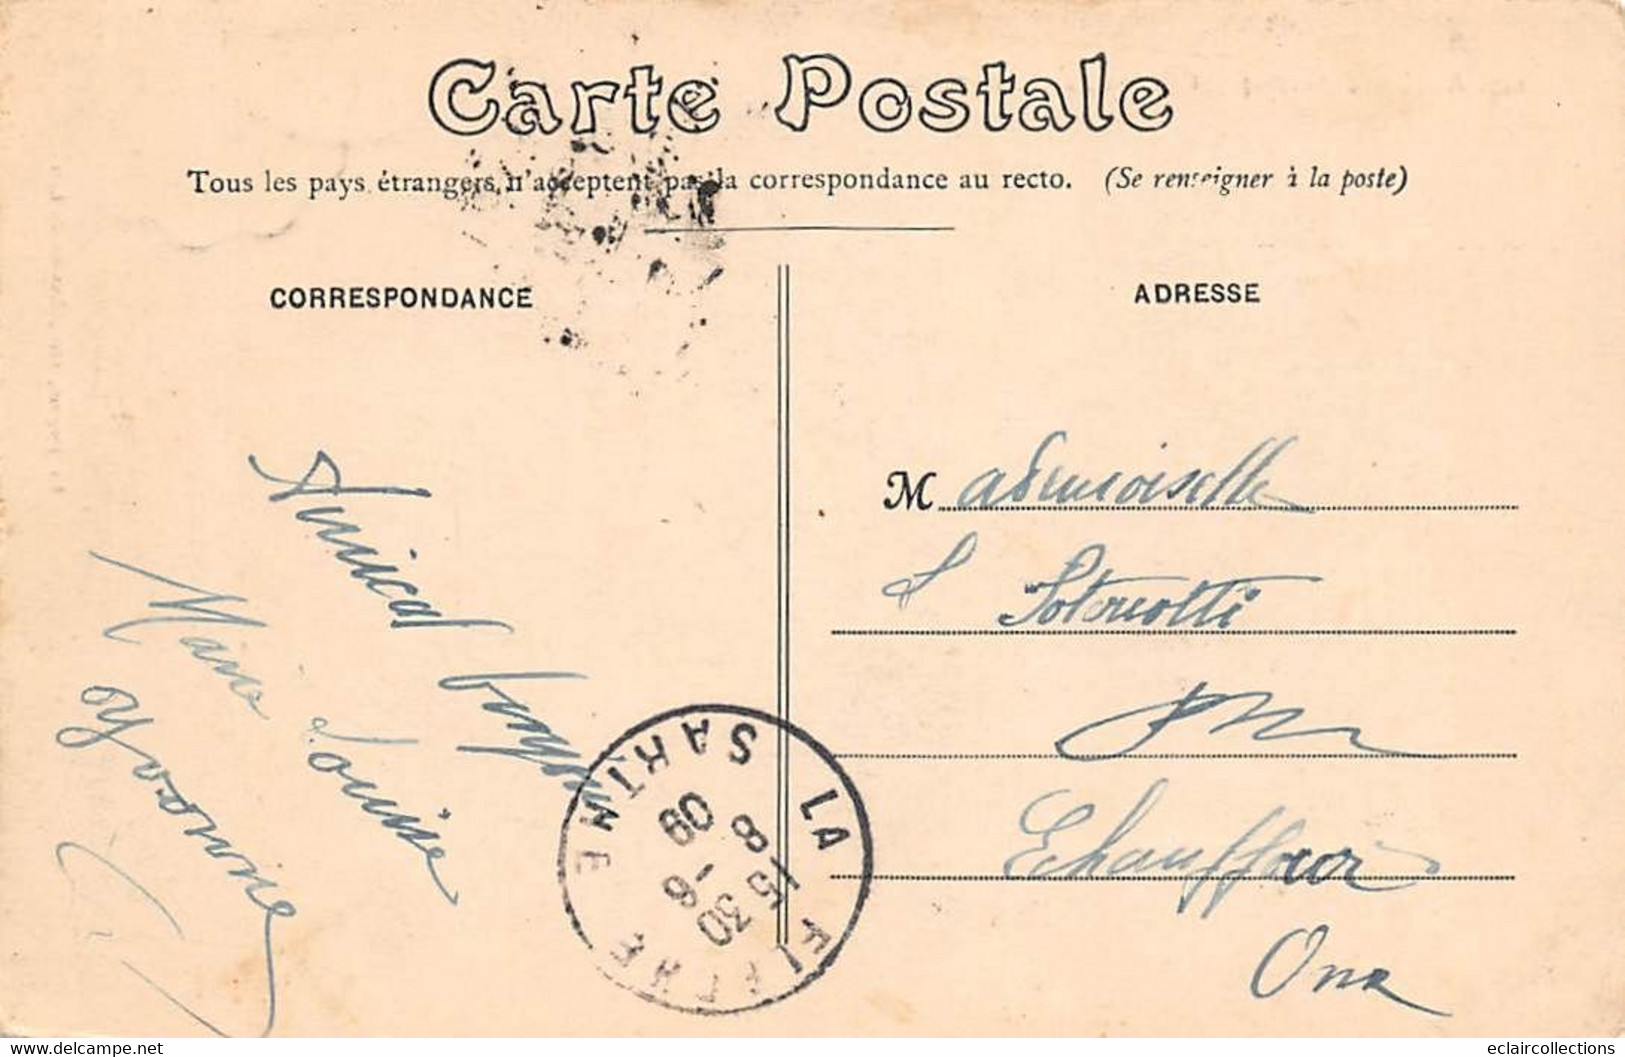 Carte Postale
Tous les pays étrangers n'acceptent pas la correspondance au recto. (Se renseigner à la poste)
CORRESPONDANCE
ADRESSE
Amical bonjour
Marie Louise
Yvonne
Mademoiselle
Echauffour
Orne
LA FLECHE
SARTHE
15 30
8 - 6
09
eclaircollections
www.delcampe.net